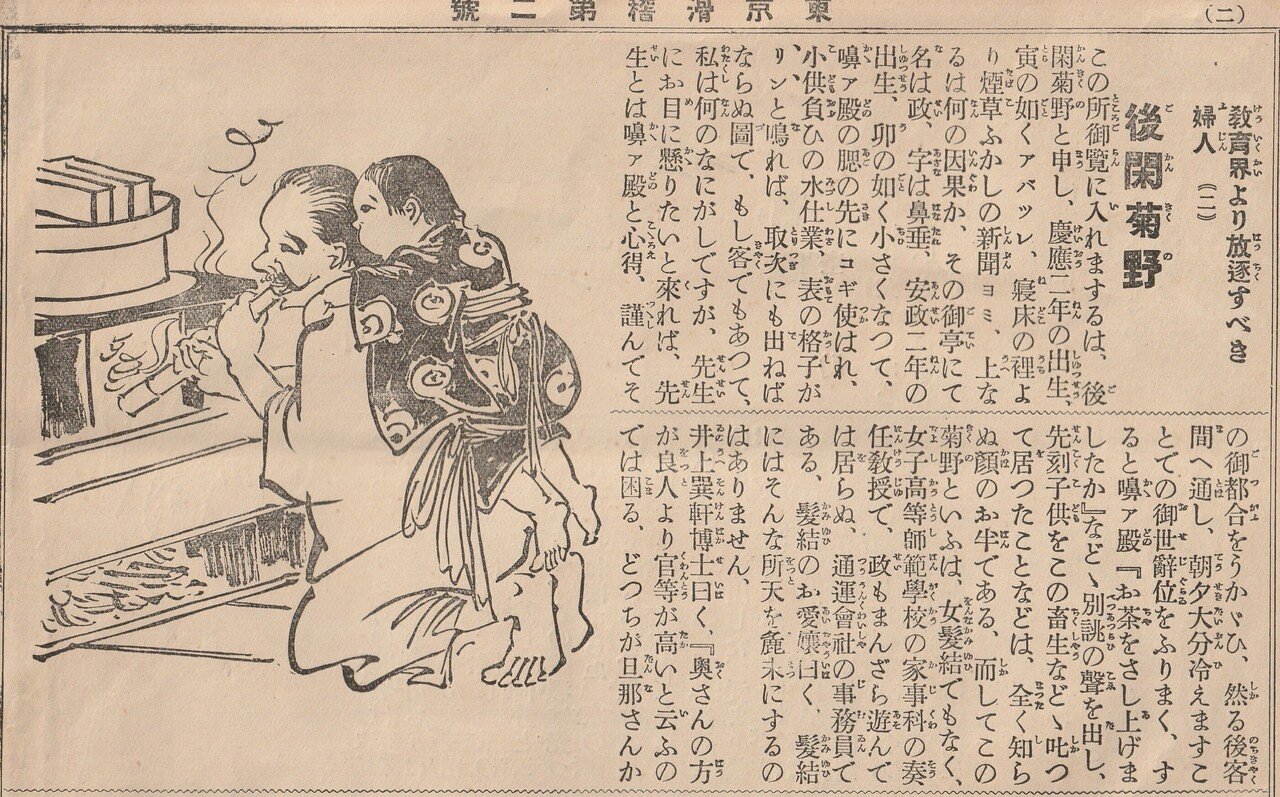 東京滑稽第二號
(二)
教育界より放逐すべき
婦人 (二)
後閑菊野
この所御覽に入れまするは、後
閑菊野と申し、慶應二年の出生、
寅の如くァバッレ、寢床の裡よ
り煙草ふかしの新聞ョミ、上な
るは何の因果か、その御亭にて
名は政、字は鼻垂、安政二年の
出生、卯の如く小さくなつて、
嚊ァ殿の腮の先にコギ使はれ、
小供負ひの水仕業、表の格子が
リンと鳴れば、取次にも出ねば
ならぬ圖で、もし客でもあつて、
私は何のなにがしですが、先生
にお目に懸りたいと來れば、先
生とは嚊ァ殿と心得、謹んでそ
の御都合をうかゞひ、然る後客
間へ通し、朝夕大分冷えますこ
とでの御世辭位をふりまく、す
ると嚊ァ殿『お茶をさし上げま
したか』などゝ別誂の聲を出し、
先刻子供をこの畜生などゝ叱つ
て居つたことなどは、全く知ら
ぬ顏のお半である、而してこの
菊野といふは、女髮結でもなく、
女子高等師範學校の家事科の奏
任敎授で、政もまんざら遊んで
は居らぬ、通運會社の事務員で
ある、髮結のお愛孃曰く、髮結
にはそんな所天を麁末にするの
はありません、
井上巽軒博士曰く、『奧さんの方
が良人より官等が高いと云ふの
では困る、どつちが旦那さんか